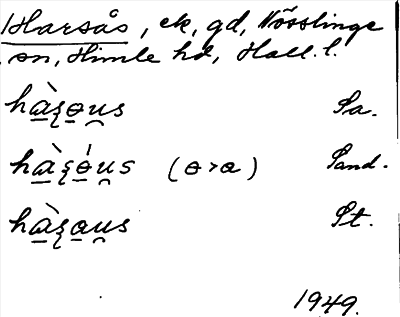 Harsås, ek, gd, Nösslinge
sn, Himle hd, Hall. l.
hàʂɵu̯s Sa.
hàʂɵ́u̯s (ɵ>a) Sand.
hàʂau̯s St.
1949.